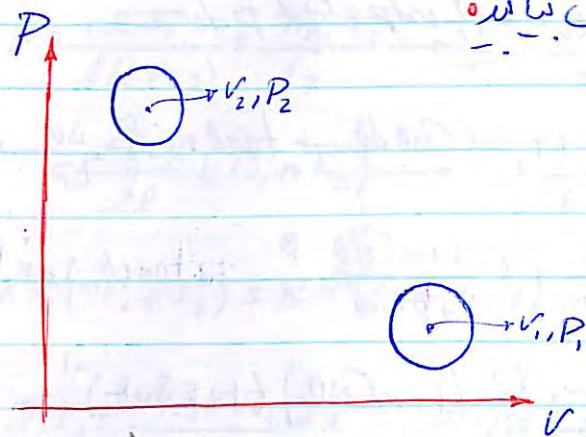 P
v₂, P₂
v₁, P₁
v